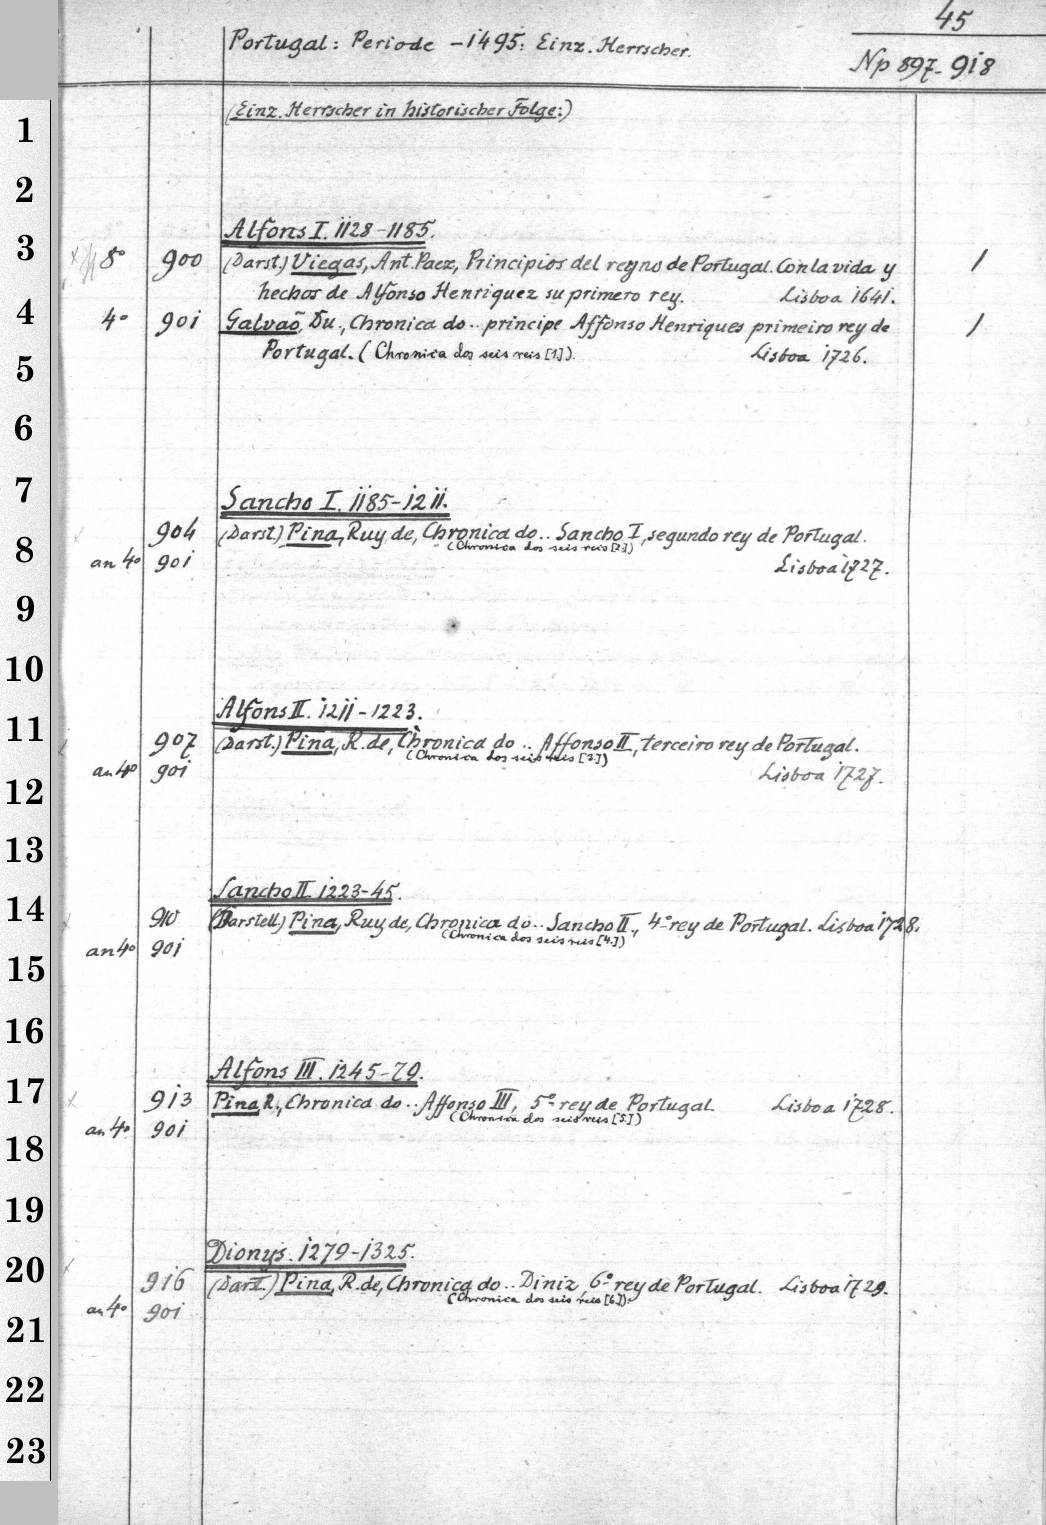 45
Portugal: Periode -1495: Einz. Herrscher.
Np 897-918
(Einz. Herrscher in historischer Folge:)
1
2
Alfons I. 1128-1185.
3
8° 900 (Darst.) Viegas, Ant. Paez, Principios del reyno de Portugal. Con la vida y 1
hechos de Alfonso Henriquez su primero rey. Lisboa 1641.
4
4° 901 Galvaõ, Du., Chronica do .. principe Affonso Henriques primeiro rey de 1
Portugal. (Chronica dos seis reis [1]). Lisboa 1726.
5
6
7
Sancho I. 1185-1211.
904 (Darst.) Pina, Ruy de, Chronica do .. Sancho I, segundo rey de Portugal.
(Chronica dos seis reis [2.])
8
an 4° 901 Lisboa 1727.
9
10
Alfons II. 1211-1223.
11
907 (Darst.) Pina, R. de, Chronica do .. Affonso II, terceiro rey de Portugal.
(Chronica dos seis reis [3.])
an 4° 901 Lisboa 1727.
12
13
Sancho II. 1223-45.
14
910 (Darstell.) Pina, Ruy de, Chronica do .. Sancho II, 4° rey de Portugal. Lisboa 1728.
(Chronica dos seis reis [4.])
an 4° 901
15
16
Alfons III. 1245-79.
17
913 Pina R., Chronica do .. Affonso III, 5° rey de Portugal. Lisboa 1728.
(Chronica dos seis reis [5.])
an 4° 901
18
19
Dionys. 1279-1325.
20
916 (Darst.) Pina, R. de, Chronica do .. Diniz, 6° rey de Portugal. Lisboa 1729.
(Chronica dos seis reis [6]).
an 4° 901
21
22
23